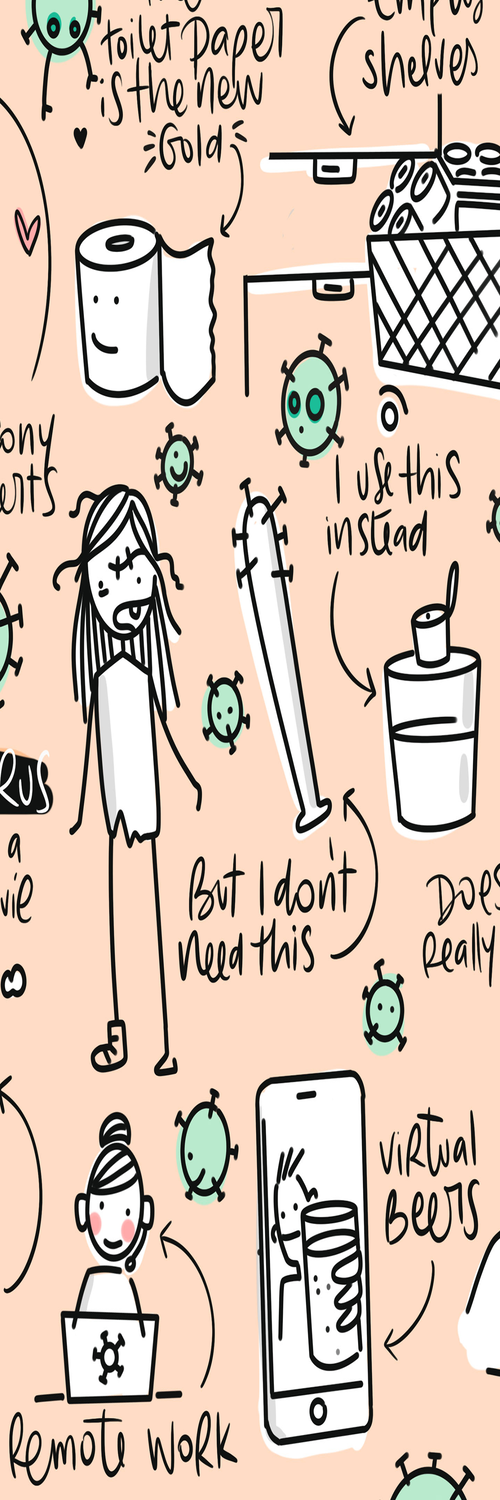 toilet paper
is the new
Gold
shelves
I use this
instead
But I don't
need this
Really
Virtual
Beers
Remote Work